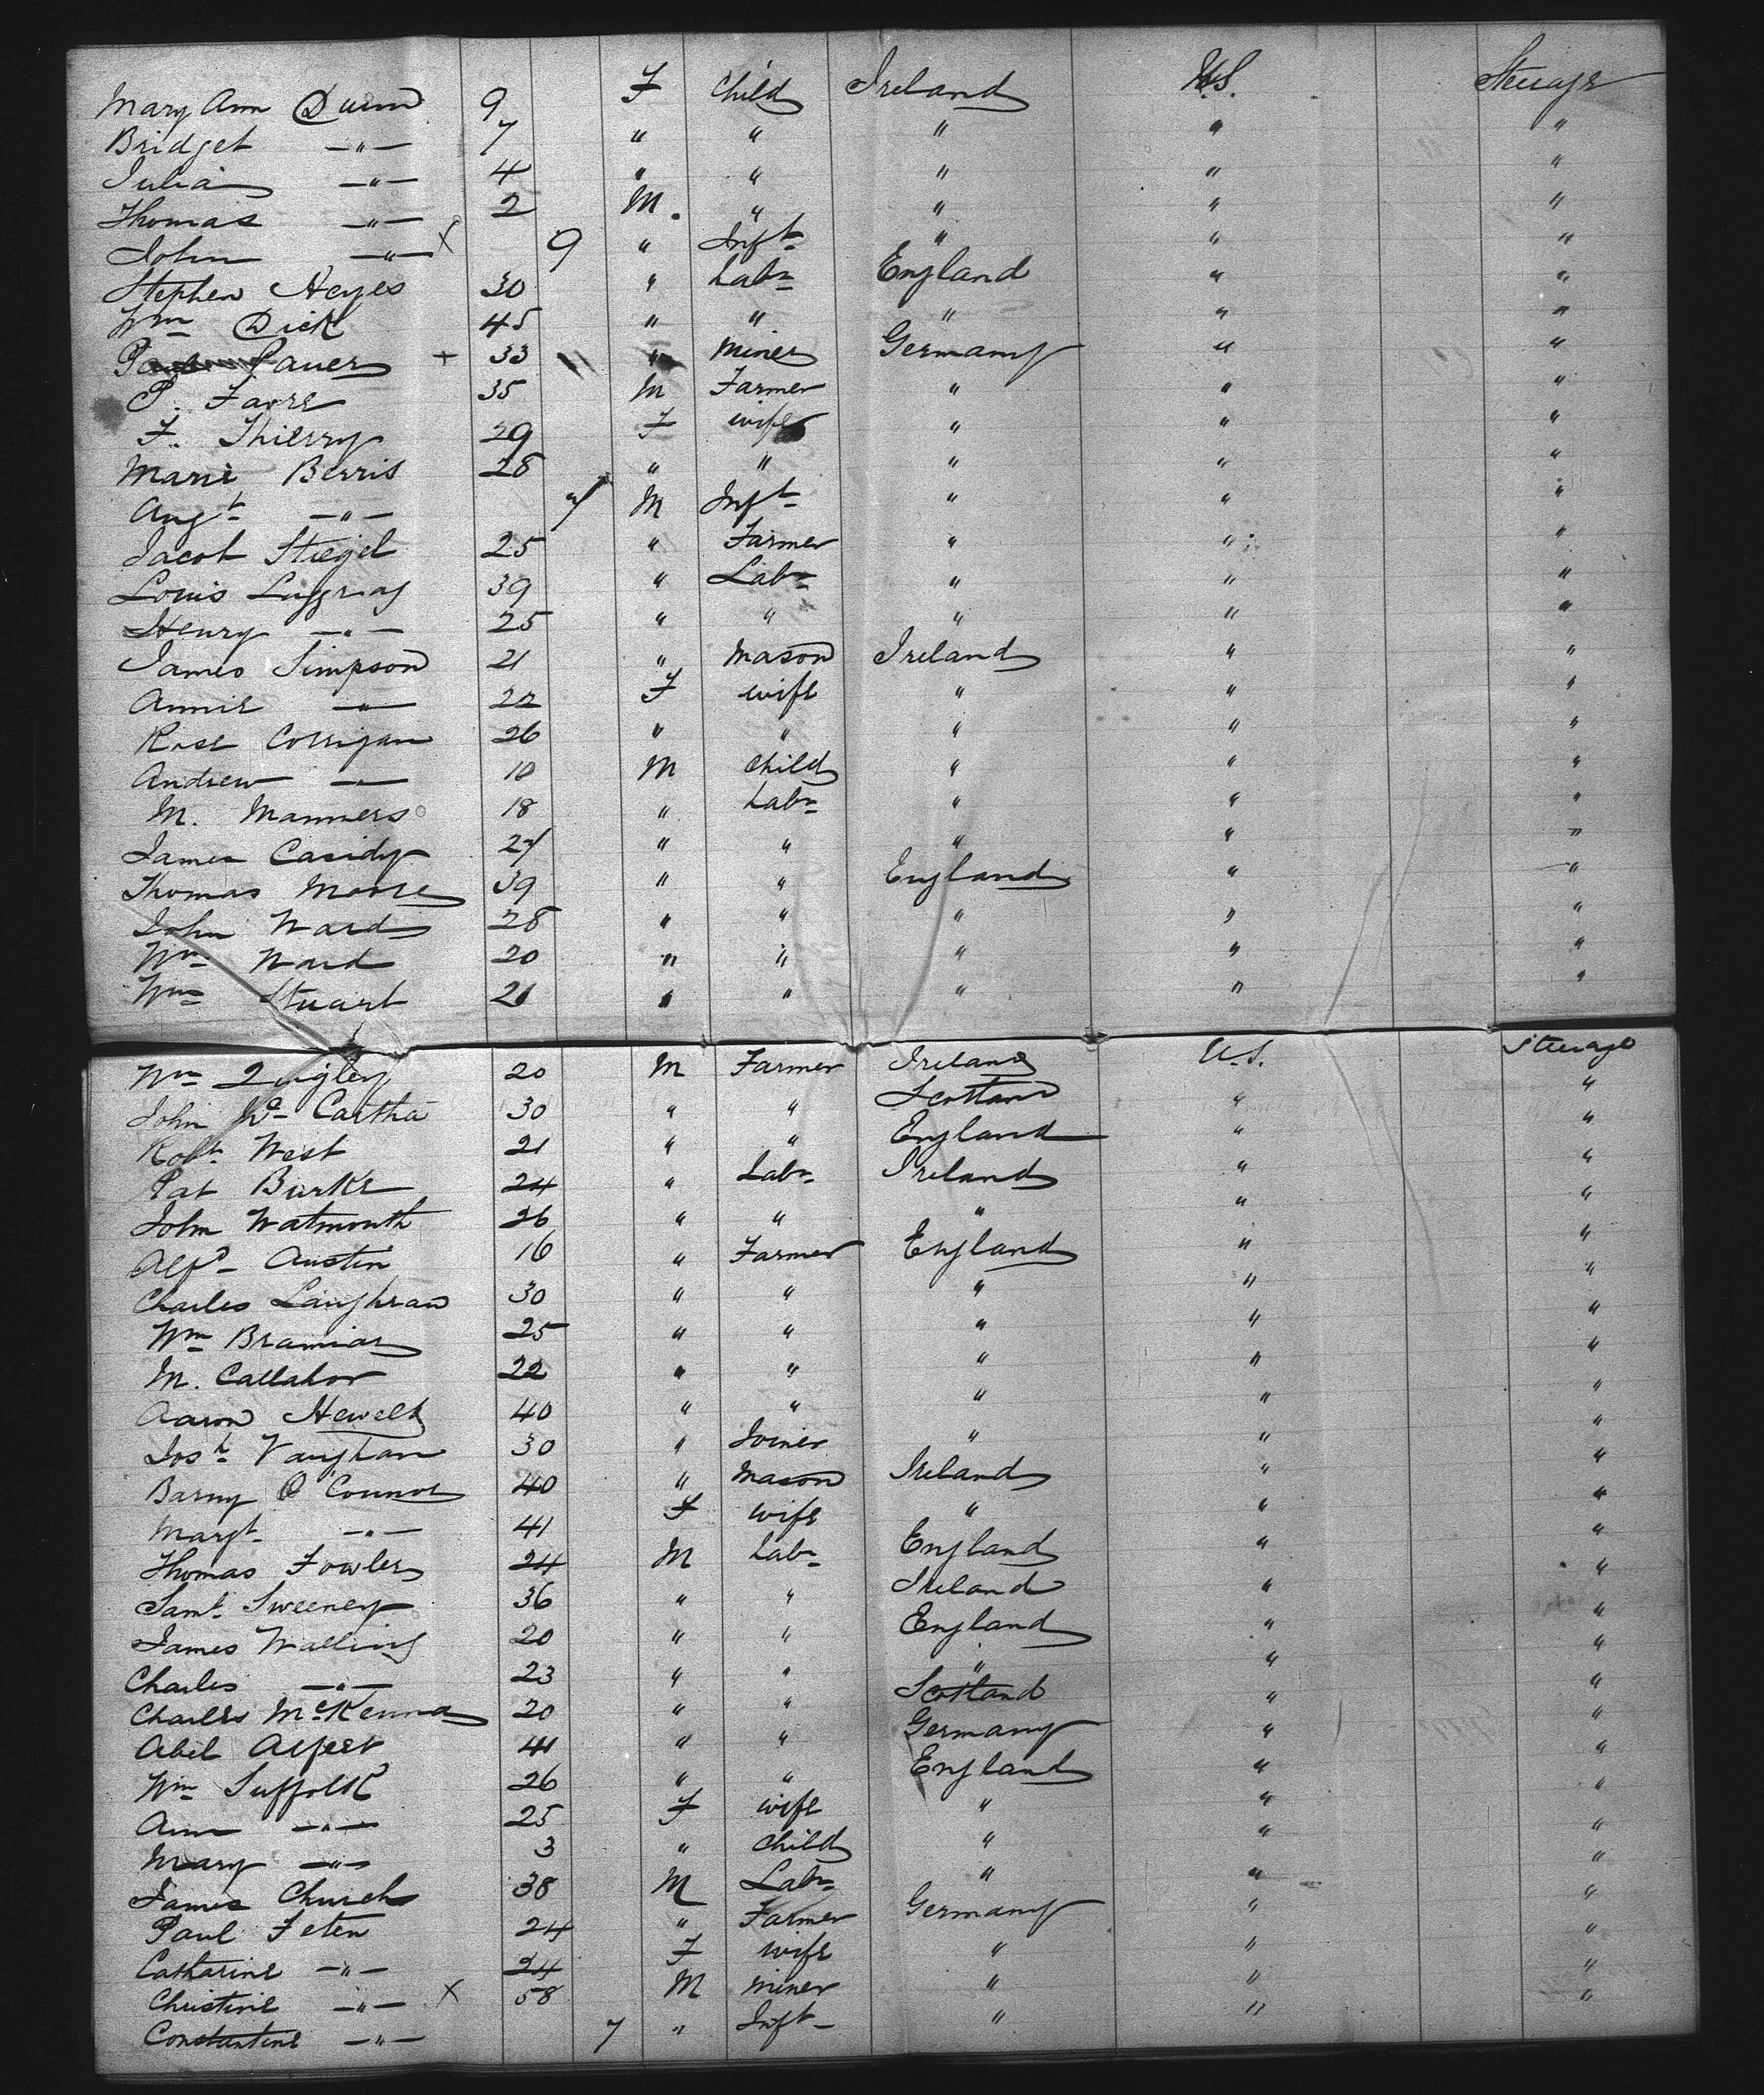 Mary Ann Dunn 9 F Child Ireland U.S. Steerage
Bridget —"— 7 " " " " "
Julia —"— 4 " " " " "
Thomas —"— 2 M. " " " "
John —"— X 9 " Inft " " "
Stephen Heyes 30 " Labr England " "
Wm Dick 45 " " " " "
Sauer + 33 " Miner Germany " "
P. Favre 35 M Farmer " " "
F. Thierry 29 F wife " " "
Marie Berris 28 " " " " "
Augt —"— M Inft " " "
Jacob Stiegel 25 " Farmer " " "
Louis 39 " Labr " " "
Henry —"— 25 " " " " "
James Simpson 21 " Mason Ireland " "
Annie —"— 22 F wife " " "
Rose Corrigan 26 " " " " "
Andrew —"— 10 M Child " " "
M. Manners 18 " Labr " " "
James Casidy 24 " " " " "
Thomas Moore 39 " " England " "
John Ward 28 " " " " "
Wm Ward 20 " " " " "
Wm Stuart 21 " " " " "
Wm Quigley 20 M Farmer Ireland U.S. Steerage
John Mc Cartha 30 " " Scotland " "
Robt West 21 " " England " "
Pat Burke 24 " Labr Ireland " "
John Watmouth 26 " " " " "
Alfd Austin 16 " Farmer England " "
Charles Laughran 30 " " " " "
Wm Bramiar 25 " " " " "
M. Callahor 22 " " " " "
Aaron Hewelt 40 " " " " "
Josh Vaughan 30 " Joiner " " "
Barny O'Connor 40 " Mason Ireland " "
Margt —"— 41 F wife " " "
Thomas Fowler 24 M Labr England " "
Saml Sweeney 36 " " Ireland " "
James Walling 20 " " England " "
Charles —"— 23 " " " " "
Charles McKenna 20 " " Scotland " "
Abel Alpert 41 " " Germany " "
Wm Suffolk 26 " " England " "
Ann —"— 25 F wife " " "
Mary —"— 3 " Child " " "
James Church 38 M Labr " " "
Paul Feten 24 " Farmer Germany " "
Catharine —"— 24 F wife " " "
Christine —"— X 58 M Miner " " "
Constantine —"— 7 " Inft " " "